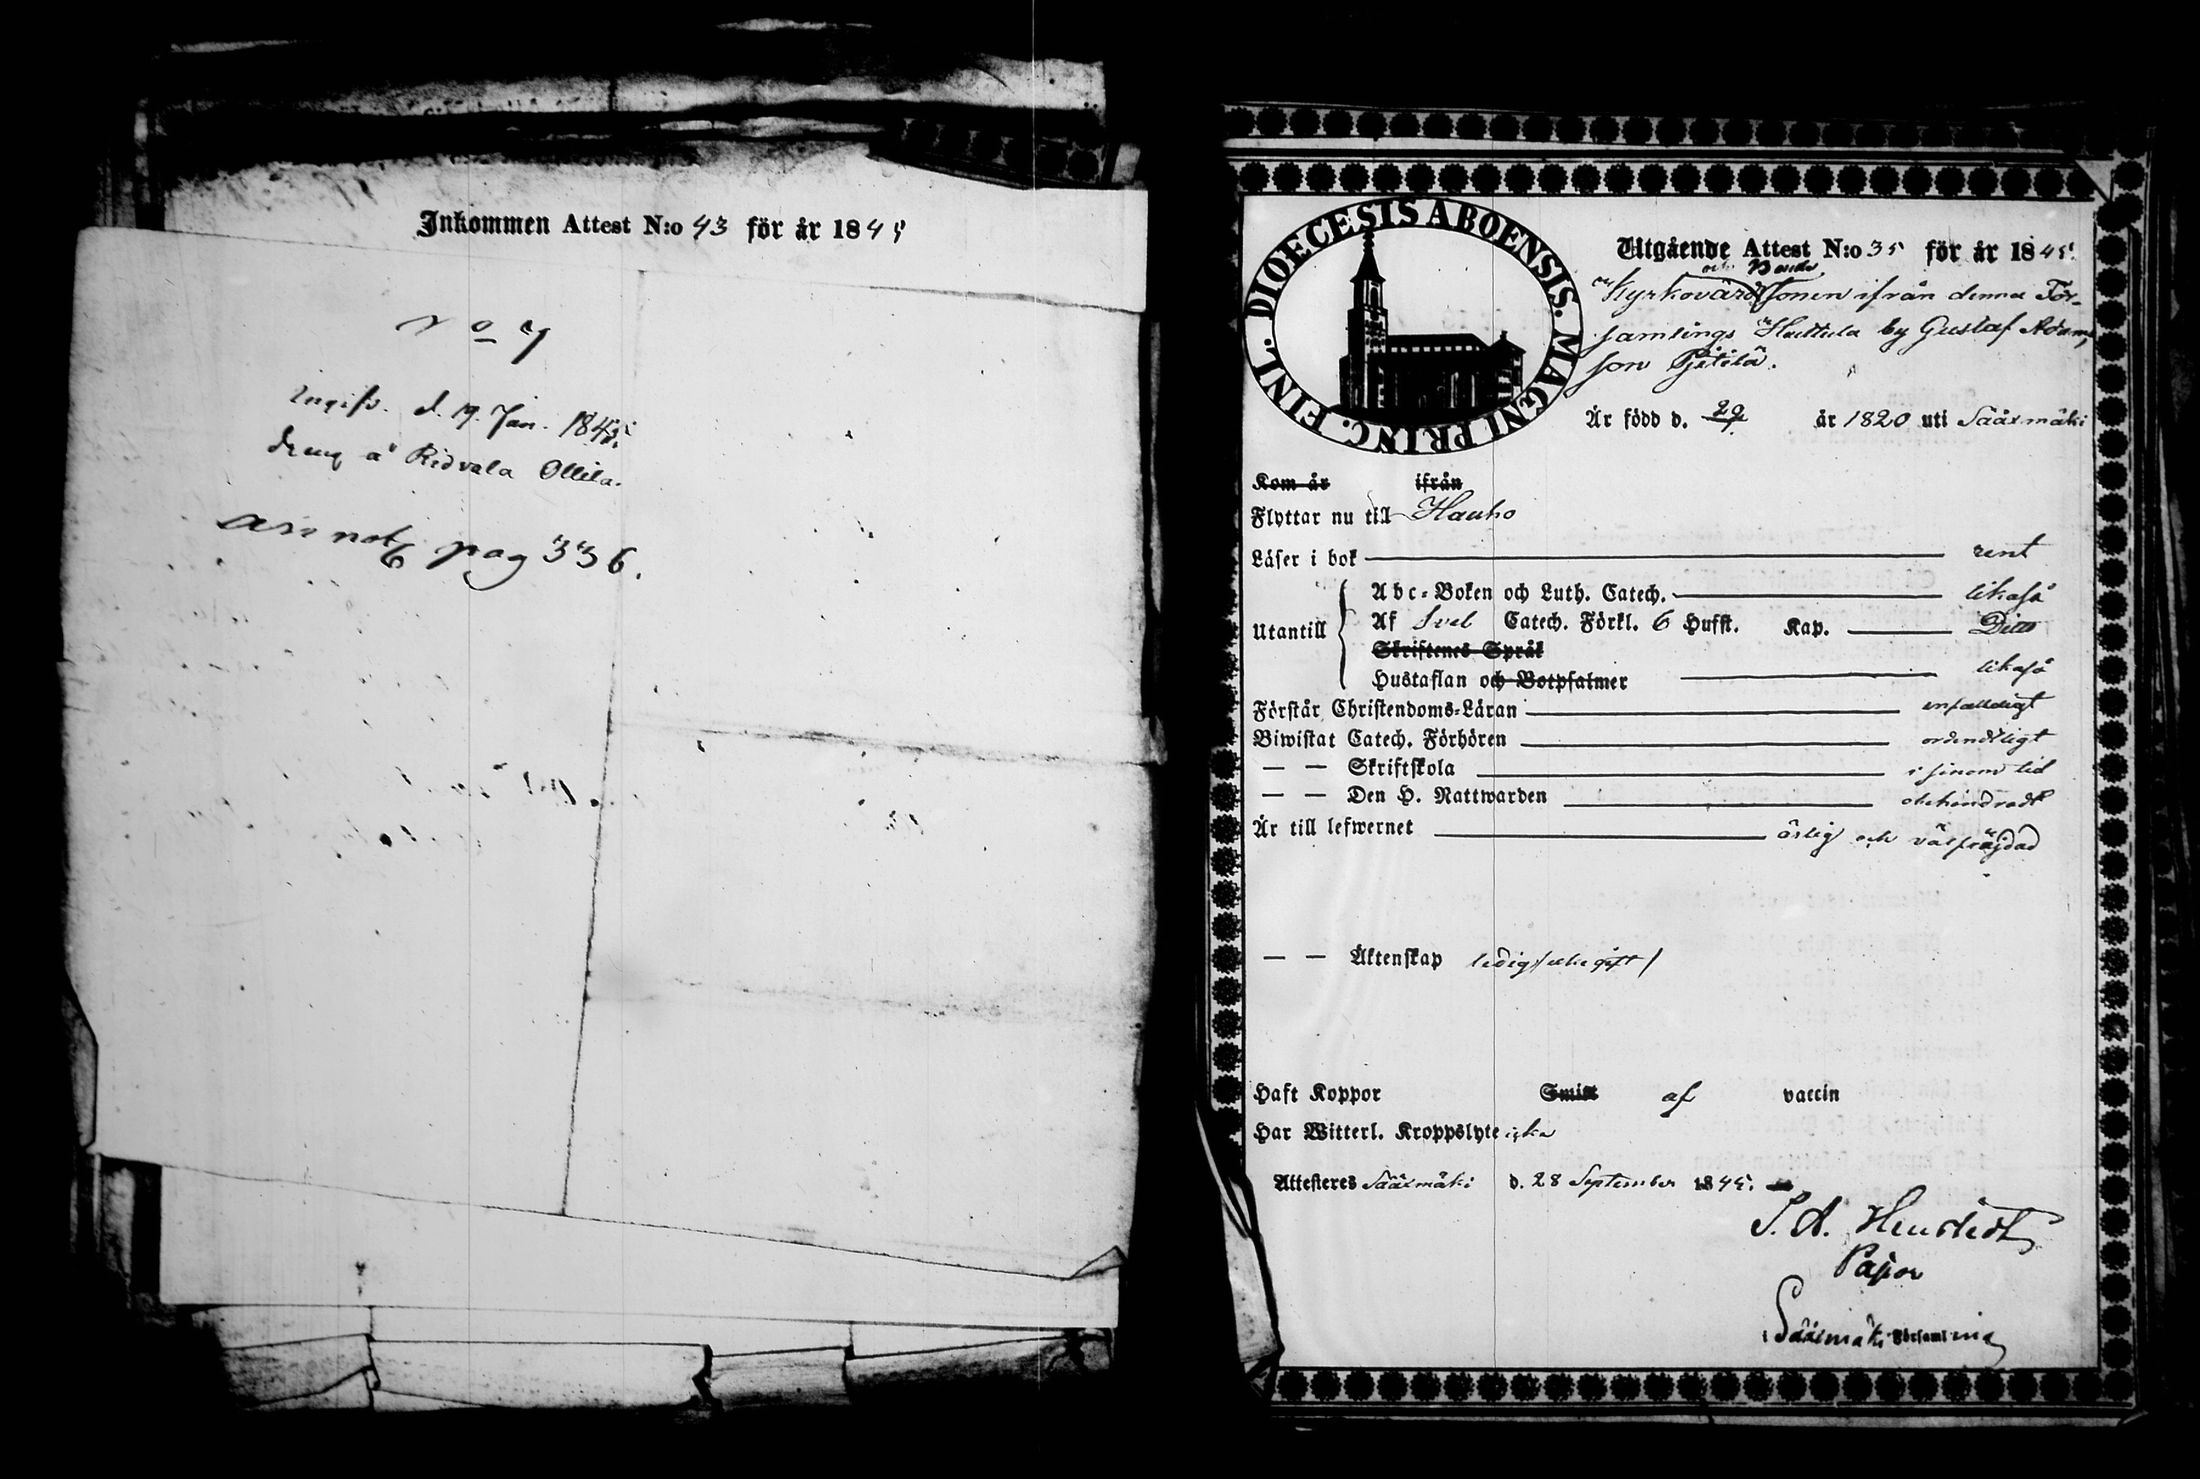 Inkommen Attest N:o 43 för år 1845
N o 7
d. 19. Jan. 1845
dreng å Ridvala Ollila.
annot pag 336.
DIOECESIS ABOENSIS. MAGNI PRINC. FINL.
Utgående Attest N:o 35 för år 1845.
och Bonde
Kyrkovärdssonen ifrån denna För-
samlings Huittula by Gustaf Adam-
son Pjätilä.
Är född d. 29 år 1820 uti Sääxmäki
Kom år ifrån
Flyttar nu till Hauho
Läser i bok rent
Abc-Boken och Luth. Catech. likaså
Utantill
Af Svel Catech. Förkl. 6 Hufst. Kap. Ditto
Skriftenes Språk
Hustaflan och Botpsalmer likaså
Förstår Christendoms-Läran enfaldigt
Biwistat Catech. Förhören ordentligt
— — Skriftskola i sinom tid
— — Den H. Nattwarden obehindradt
Är till lefwernet ärlig och välfrägdad
— — Äktenskap ledig
Haft Koppor Smitt af vaccin
Har Witterl. Kroppslyte icke
Attesteres Sääxmäki d. 28 September 1845.
Sääxmäki Församling